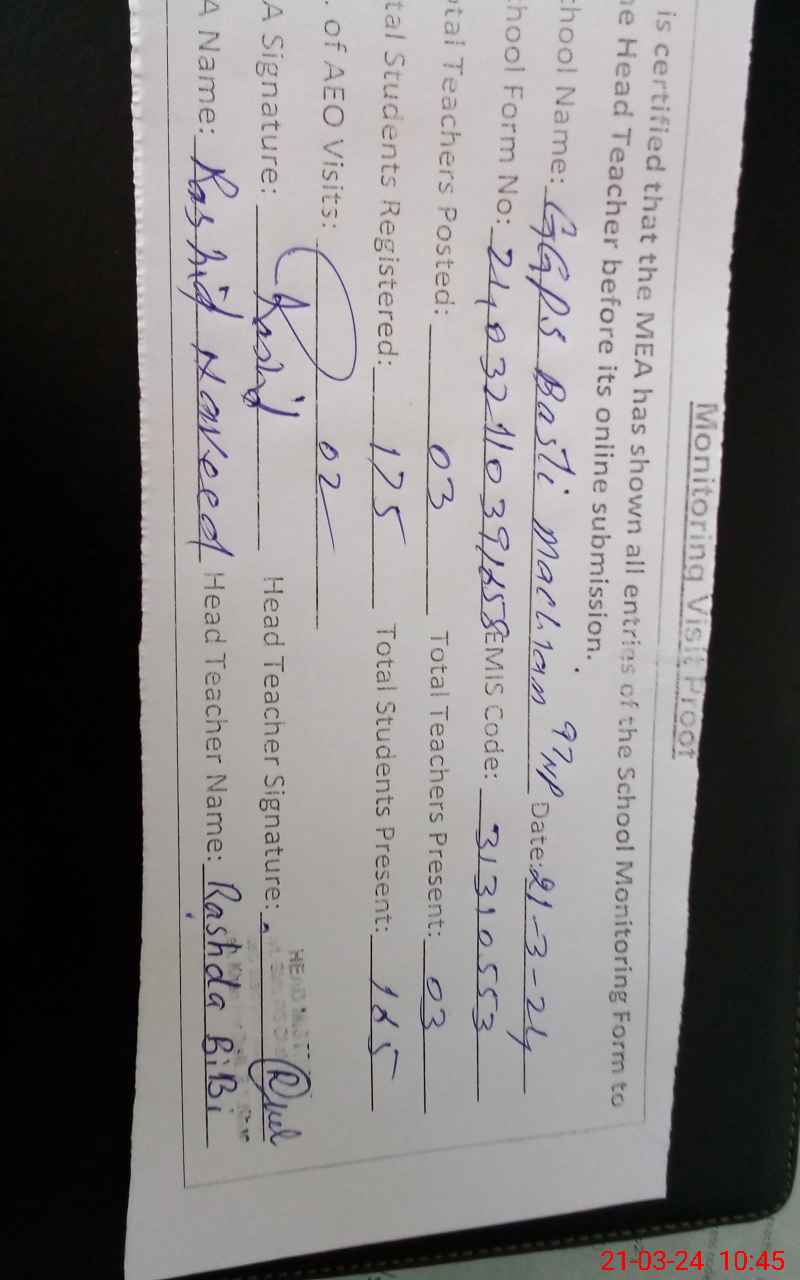 Monitoring Visit Proof
is certified that the MEA has shown all entries of the School Monitoring Form to
he Head Teacher before its online submission.
chool Name: GGPS Basti Machian 97NP Date: 21-3-24
chool Form No: EMIS Code: 31310553
otal Teachers Posted: 03 Total Teachers Present: 03
tal Students Registered: 175 Total Students Present:
. of AEO Visits: 02
A Signature: Rashid Head Teacher Signature:
A Name: Rashid Naveed Head Teacher Name: Rashda BiBi
21-03-24 10:45